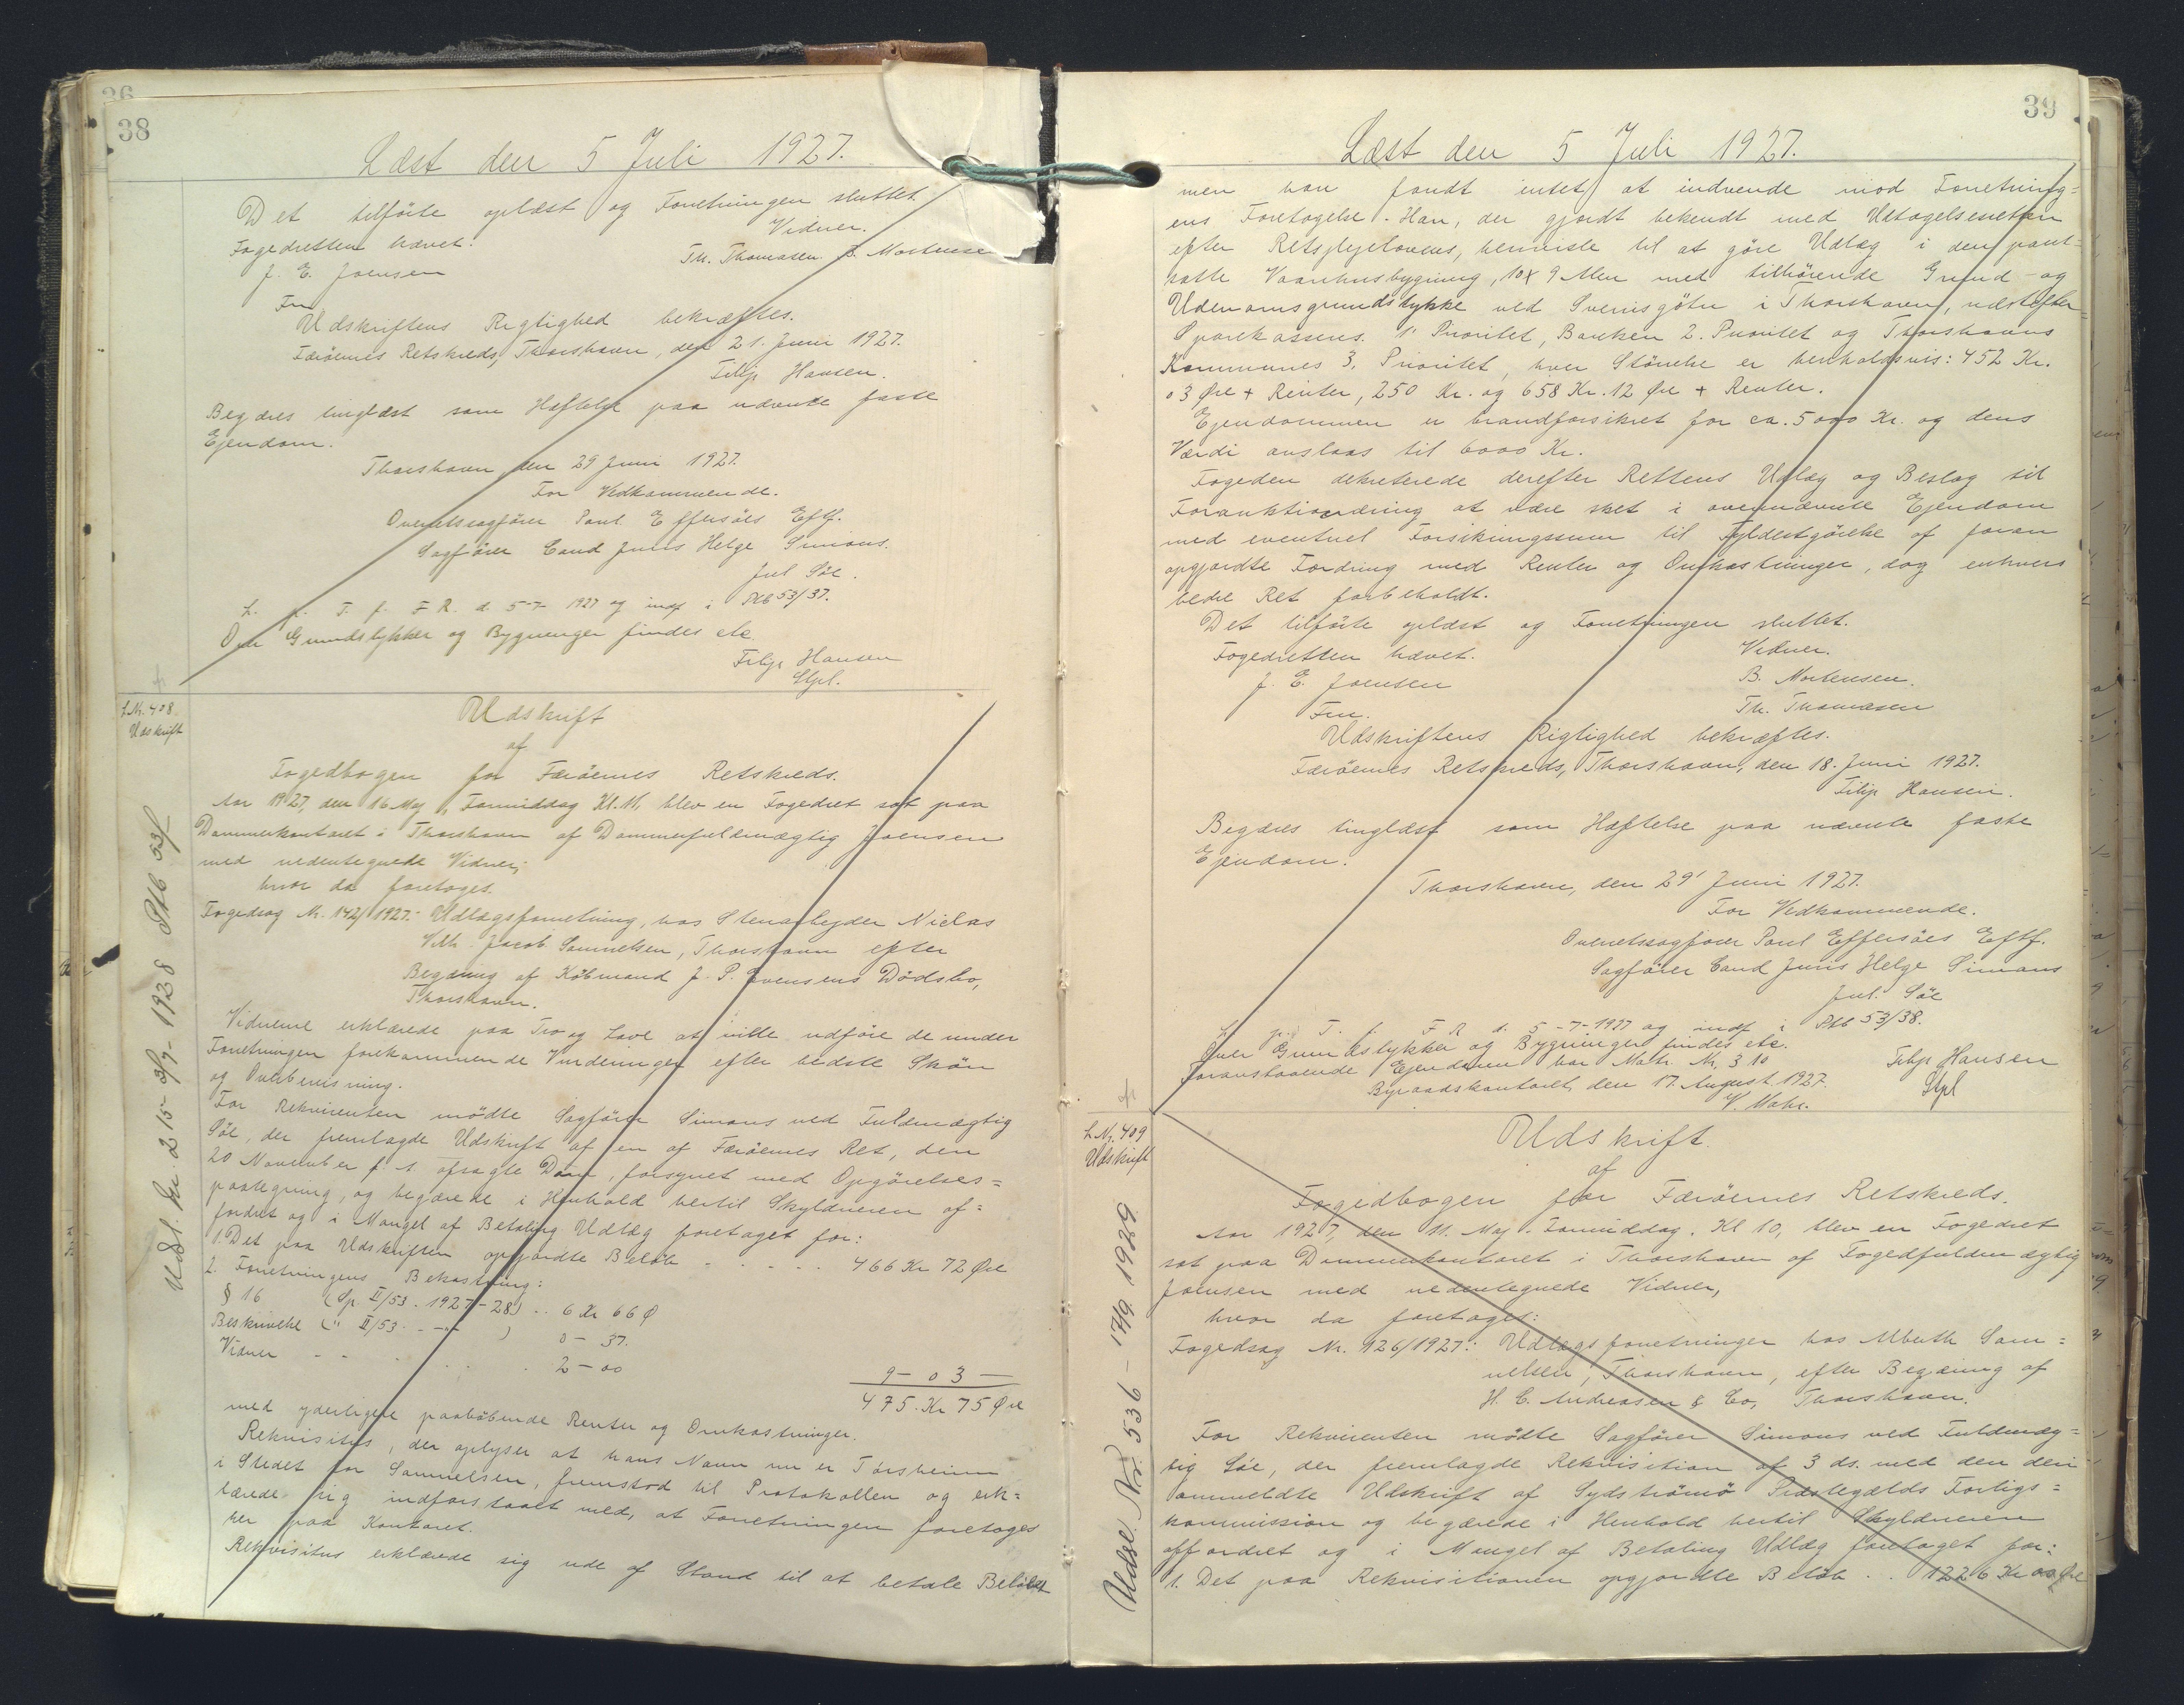 36
38
Læst den 5 Juli 1927.
Det tilförte oplæst og Forretningen sluttet
Fogedretten hævet.
Vidner.
J. E. Joensen
Th. Thomasen B. Mortensen
Fm
Udskriftens Rigtighed bekræftes.
Færöernes Retskreds, Thorshavn, den 21. Juni 1927.
Filip Hansen.
Begæres tinglæst som Hæftelse paa nævnte faste
Ejendom.
Thorshavn, den 29 Juni 1927.
For Vedkommende.
Overretssagförer Poul Effersöes Eftf.
Sagförer Cand Juris Helge Simons.
Jul Söe.
L. p. T. f. F. R. d. 5-7- 1927 og indf i Ptb 53/37.
Over Grundstykker og Bygninger findes etc
Filip Hansen
Stpl.
L Nr. 408
Udskrift
Udsl. Nr. 215 - 3/7 - 1928 Ptb 53f
Udskrift
af
Fogedbogen for Færöernes Retskreds.
Aar 1927, den 16 Maj, Formiddag Kl. 11, blev en Fogedret sat paa
Dommerkontoret i Thorshavn af Dommerfuldmægtig Joensen
med undertegnede Vidner,
hvor da foretoges.
Fogedsag Nr. 142/1927: Udlægsforretning, hos Stenarbejder Niclas
Vilh. Jacob Samuelsen, Thorshavn efter
Begæring af Köbmand J. P. Evensens Dödsbo,
Thorshavn.
Vidnerne erklærede paa Tro og Love at ville udföre de under
Forretningen forekommende Vurderinger efter bedste Skön
og Overbevisning.
For Rekvirenten mödte Sagförer Simons ved Fuldmægtig
Söe, der fremlagde Udskrift af en af Færöernes Ret, den
20 November f. A. afsagte Dom, forsynet med Opgörelses=
paategning, og begærede i Henhold hertil Skyldneren af=
fordret og i Mangel af Betaling Udlæg foretaget for:
1. Det paa Udskriften opgjordte Belöb - - - - - 466 Kr 72 Øre
2. Forretningens Bekostning:
§ 16 (Sp. II/53. 1927-28) .. 6 Kr 66 Ø
Beskrivelse (" II/53. - " - ) 0 - 37.
Vidner - - - . . . 2 - 00
9 - 03 -
475. Kr 75 Øre
med yderligere paalöbende Renter og Omkostninger.
Rekvisitus, der oplyser at hans Navn nu er Tórsheim
i Stedet for Samuelsen, fremstod til Protokollen og erk=
lærede sig indforstaaet med, at Forretningen foretoges
her paa Kontoret.
Rekvisitus erklærede sig ude af Stand til at betale Belöbet
39
Læst den 5 Juli 1927.
men han fandt intet at indvende mod Forretning=
ens Foretagelse. Han, der gjordt bekendt med Udtagelsesretten
efter Retsplejelovens, henviste til at göre Udlæg i den pant=
satte Vaanhusbygning, 10 x 9 Alen med tilhörende Grund - og
Udenomsgrundstykke ved Sverrisgötu i Thorshavn, næstefter
Sparekassens. 1' Prioritet, Banken 2. Prioritet og Thorshavns
Kommunes 3. Prioritet, hvor Störrelse er henholdsvis: 452 Kr.
03 Øre + Renter, 250 Kr. og 658 Kr. 12 Øre + Renter.
Ejendommen er brandforsikret for ca. 5000 Kr. og dens
Værdi anslaas til 6000 Kr.
Fogeden dekreterede derefter Rettens Udlæg og Beslag til
Forauktionering at være sket i ovennævnte Ejendom
med eventuel Forsikringssum til Fyldestgörelse af foran
opgjordte Fordring med Renter og Omkostninger, dog enhvers
bedre Ret forbeholdt.
Det tilförte oplæst og Forretningen sluttet.
Fogedretten hævet.
Vidner.
J. E. Joensen
B. Mortensen.
Fm.
Th. Thomasen
Udskriftens Rigtighed bekræftes.
Færöernes Retskreds, Thorshavn, den 18. Juni 1927.
Filip Hansen.
Begæres tinglæst som Hæftelse paa nævnte faste
Ejendom.
Thorshavn, den 29' Juni 1927.
For Vedkommende.
Overretssagförer Poul Effersöes Eftf.
Sagförer Cand Juris Helge Simons
Jul. Söe
L. p. T. f. F R d. 5-7-1927 og indf i Ptb 53/38.
Over Grundstykker og Bygninger findes etc.
Foranstaaende Ejendom har Matr. Nr. 310
Filip Hansen
Byraadskontoret, den 17. August 1927.
Stpl
L Nr. 409
Udskrift
Udsl. Nr. 536 - 17/9 1929
Udskrift.
af
Fogedbogen for Færöernes Retskreds.
Aar 1927, den 11. Maj. Formiddag. Kl 10, blev en Fogedret
sat paa Dommerkontoret i Thorshavn af Fogedfuldmægtig
Joensen med undertegnede Vidner,
hvor da foretoges:
Fogedsag Nr. 126/1927: Udlægsforretninger hos Alberth Sam=
uelsen, Thorshavn, efter Begæring af
H. C. Andreasen & Co, Thorshavn.
For Rekvirenten mödte Sagförer Simons ved Fuldmæg=
tig Söe, der fremlagde Rekvisition af 3 ds. med den deri
ommeldte Udskrift af Sydströmö Præstegælds Forligs=
kommission og begærede i Henhold hertil Skyldneren
affordret og i Mangel af Betaling Udlæg foretaget for:
1. Det paa Rekvisitionen opgjordte Belöb . . 1226 Kr 00 Øre